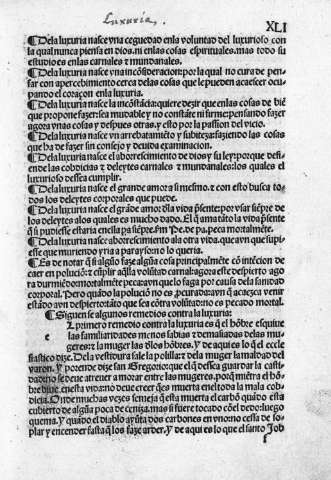 Luxuria.
XLI
¶ Dela luxuria nasce vna ceguedad enla voluntad del luxurioso con
la qual nunca piensa en dios. ni enlas cosas espirituales. mas todo su
estudio es enlas carnales ⁊ mundanales.
¶ Dela luxuria nasce vna incõsideracion: por la qual no cura de pen-
sar con apercebimiento cerca delas cosas que le pueden acaescer ocu
pando el coraçon enla luxuria.
¶ Dela luxuria nasce la incõstãcia: quiere dezir que enlas cosas de biẽ
que propone fazer: sea mudable y no constãte ni firme: pensando fazer
agora vnas cosas y despues otras. y esto por la passion del vicio.
¶ Dela luxuria nasce vn arrebatamiẽto y subiteza: faziendo las cosas
que ha de fazer sin consejo y deuida examinacion.
¶ Dela luxuria nasce el aborrescimiento de dios y su ley: porque defi-
ende las cobdicias ⁊ deleytes carnales ⁊ mundanales: los quales el
luxurioso dessea cumplir.
¶ Dela luxuria nasce el grande amor a si mesmo. ⁊ con esto busca to
dos los deleytes corporales que puede.
¶ Dela luxuria nasce el grãde amor dla vida p̃sente: por vsar siẽpre de
los deleytes alos quales es mucho dado. El q̃ ama tãto la vida p̃sente
q̃ si pudiesse estaria enella pa siẽpre. sin de pa. peca mortalmẽte.
¶ Dela luxuria nasce aborrescimiento ala otra vida. que avn que supi-
esse que muriendo yria a parayso no lo querria.
¶ Es de notar q̃ si algũo faze algũa cosa principalmẽte cõ intẽcion de
caer en poluciõ: ⁊ cũplir aq̃lla volũtad carnal: agora este despierto ago
ra durmiẽdo mortalmẽte peca: avn que lo faga por causa dela sanidad
corporal. Pero quãdo la poluciõ no es p̃curada: avn q̃ acaezca venir
estãdo avn despierto: tãto que sea cõtra volũtad no es pecado mortal.
¶ Siguen se algunos remedios contra la luxuria:
e
L primero remedio contra la luxuria es q̃l hõbre esquiue
las familiaridades menos sabias ⁊ demasiadas delas mu
geres: ⁊ la muger las dlos hõbres. Y de aqui es lo q̃ el eccle
siastico dize. Dela vestidura sale la polilla: ⁊ dela muger la maldad del
varon. Y porende dize san Gregorio: que el q̃ dessea guardar la casti-
dad no se deue atreuer a morar entre las mugeres. porq̃ miẽtra el hõ-
bre biue enesta vida no deue creer q̃ es muerta enel toda la mala cob-
dicia. Onde muchas vezes semeja q̃ esta muerta el carbõ quãdo esta
cubierto de algũa poca de ceniza. mas si fuere tocado cõel dedo: luego
quema. Y quãdo el diablo ayũta dos carbones en vno: no cessa de so-
plar y encender fasta q̃ los faze arder. Y de aqui es lo que el santo Job